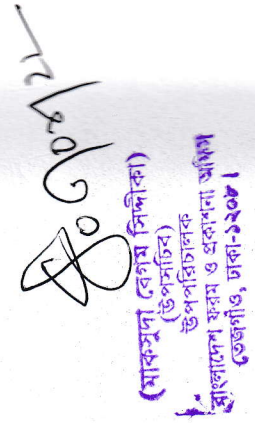 (মাকসুদা বেগম সিদ্দীকা)
(উপসচিব)
উপপরিচালক
বাংলাদেশ ফরম ও প্রকাশনা অফিস
তেজগাঁও, ঢাকা-১২০৮।